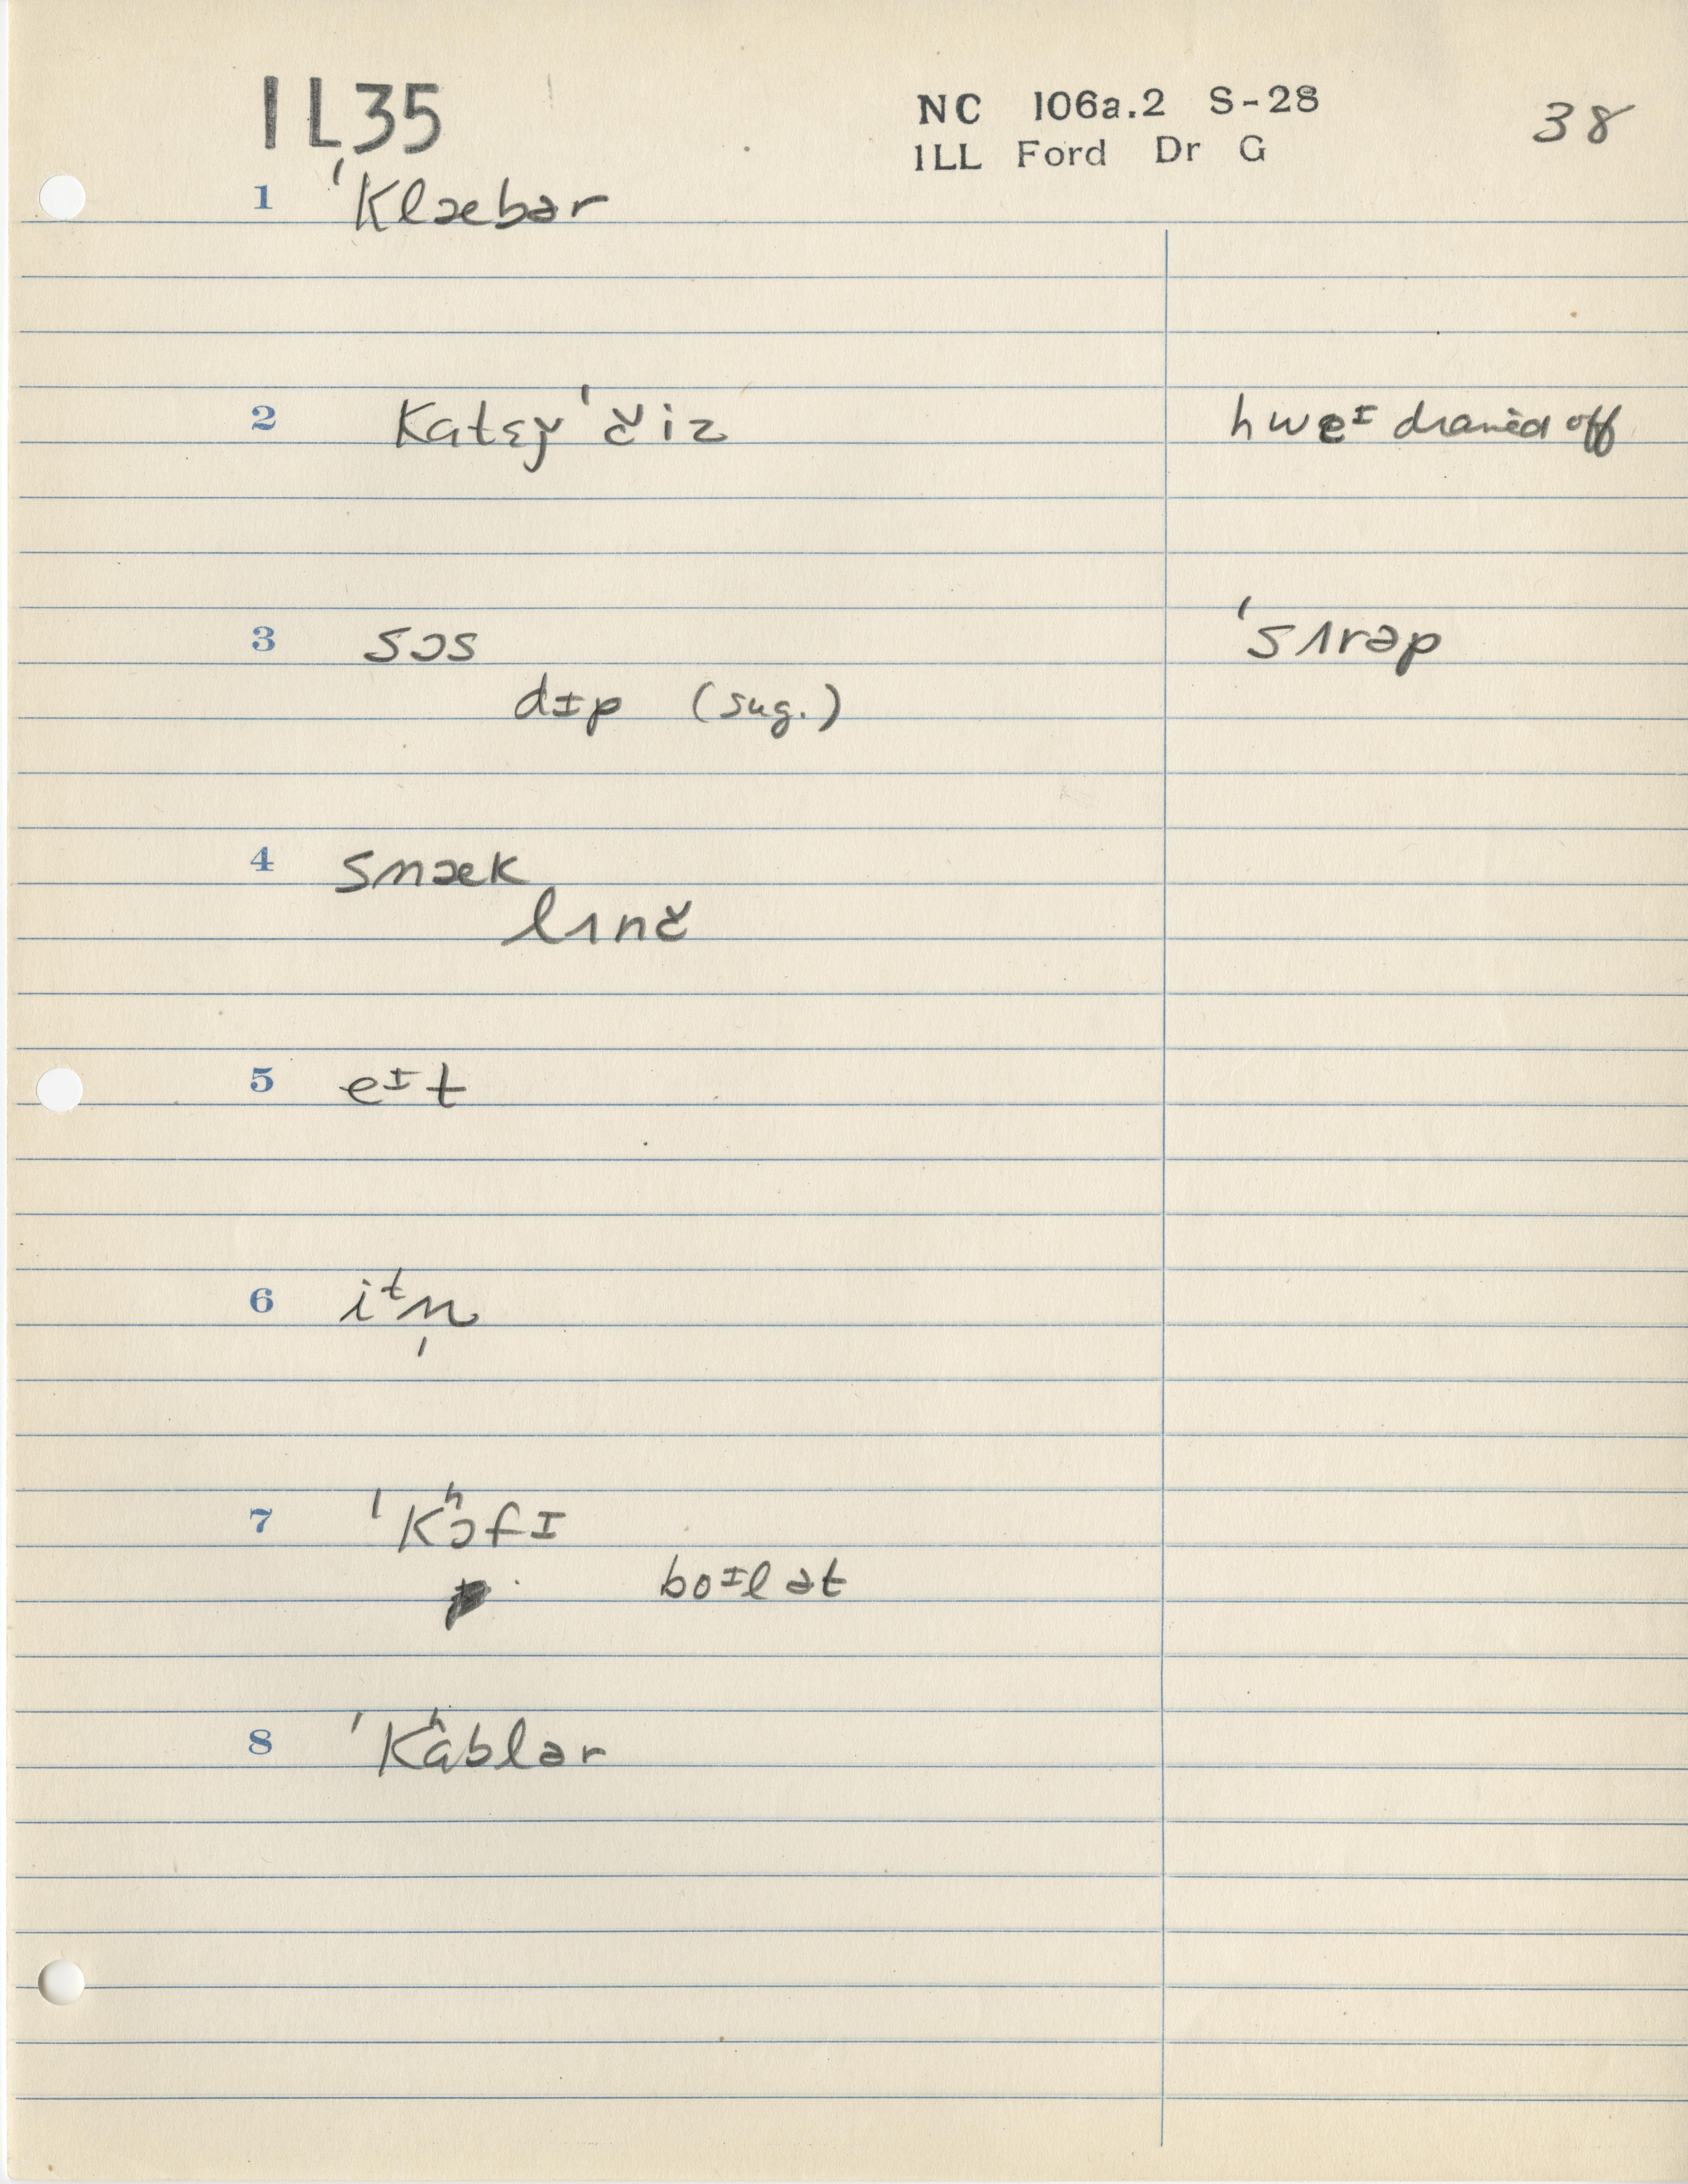 IL35
NC 106a.2 S-28
ILL Ford Dr G
38
1 ˈklæbər
2 katɛǰˈčiz hweᴵ drained off
3 sɔs ˈsʌrəp
dɪp (sug.)
4 snæk
lʌnč
5 eᴵt
6 iᵗn̩
7 ˈkʰɔfɪ
boᴵl ət
8 ˈkʰablər